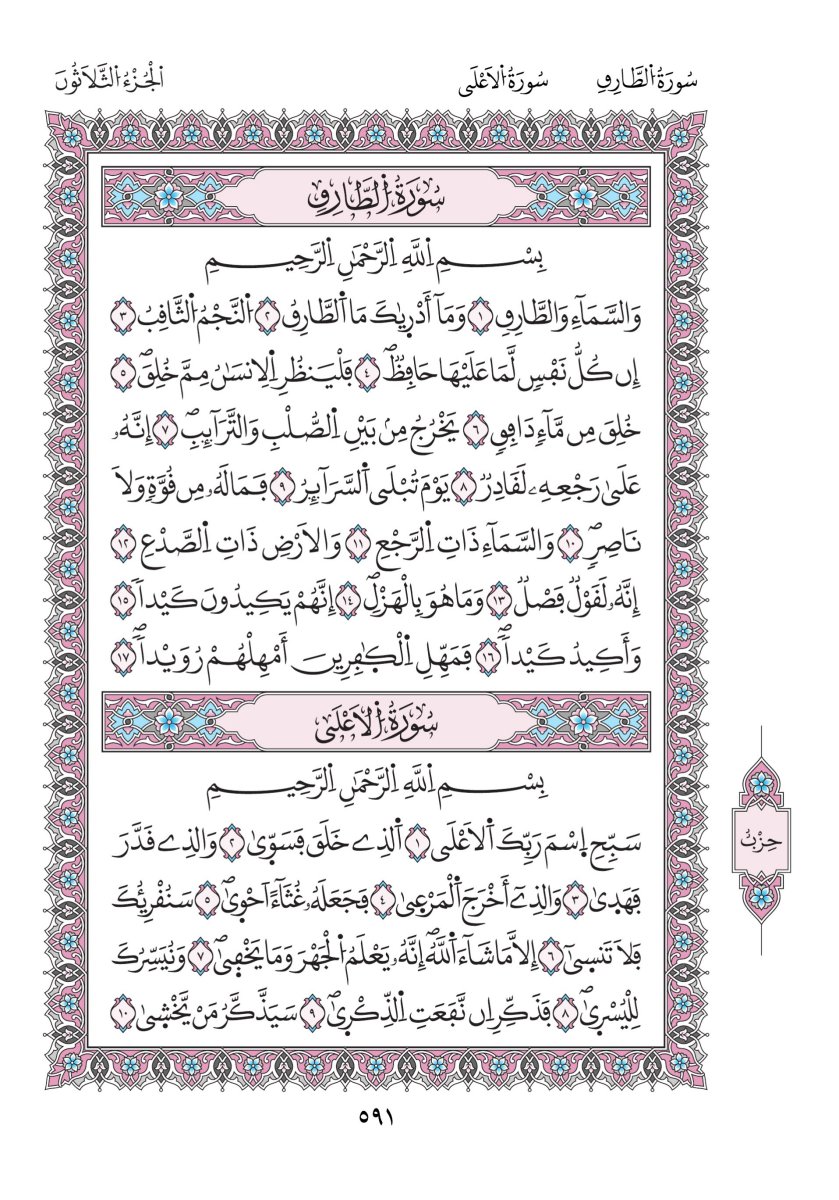 سُورَةُ اُلطَّارِقِ سُورَةُ اُلَاعْلَى اُلْجُزْءُ اُلثَّلَاثُونَ
سُورَةُ اُلطَّارِقِ
بِسْمِ اِللَّهِ اِلرَّحْمَٰنِ اِلرَّحِيمِ
وَالسَّمَآءِ وَالطَّارِقِ ١ وَمَآ أَدْرِيٰكَ مَا اَلطَّارِقُ ٢ اُلنَّجْمُ اُلثَّاقِبُ ٣
إِن كُلُّ نَفْسٍ لَّمَا عَلَيْهَا حَافِظٌۖ ٤ فَلْيَنظُرِ اِلِانسَٰنُ مِمَّ خُلِقَۖ ٥
خُلِقَ مِن مَّآءٖ دَافِقٖ ٦ يَخْرُجُ مِنۢ بَيْنِ اِلصُّلْبِ وَالتَّرَآئِبِۖ ٧ إِنَّهُۥ
عَلَىٰ رَجْعِهِۦ لَقَادِرٞ ٨ يَوْمَ تُبْلَى اَلسَّرَآئِرُ ٩ فَمَا لَهُۥ مِن قُوَّةٖ وَلَا
نَاصِرٖۖ ١٠ وَالسَّمَآءِ ذَاتِ اِلرَّجْعِ ١١ وَالَارْضِ ذَاتِ اِلصَّدْعِ ١٢
إِنَّهُۥ لَقَوْلٞ فَصْلٞ ١٣ وَمَا هُوَ بِالْهَزْلِۖ ١٤ إِنَّهُمْ يَكِيدُونَ كَيْداٗ ١٥
وَأَكِيدُ كَيْداٗۖ ١٦ فَمَهِّلِ اِلْكٰفِرِينَ أَمْهِلْهُمْ رُوَيْداٗۖ ١٧
سُورَةُ اُلَاعْلَى
بِسْمِ اِللَّهِ اِلرَّحْمَٰنِ اِلرَّحِيمِ
سَبِّحِ اِسْمَ رَبِّكَ اَلَاعْلَى ١ اَلذِے خَلَقَ فَسَوّ۪ىٰ ٢ وَالذِے قَدَّرَ
فَهَد۪ىٰ ٣ وَالذِےٓ أَخْرَجَ اَلْمَرْع۪ىٰ ٤ فَجَعَلَهُۥ غُثَآءً اَحْو۪ىٰۖ ٥ سَنُقْرِئُكَ
فَلَا تَنس۪ىٰٓ ٦ إِلَّا مَا شَآءَ اَللَّهُۖ إِنَّهُۥ يَعْلَمُ اُلْجَهْرَ وَمَا يَخْف۪ىٰۖ ٧ وَنُيَسِّرُكَ
لِلْيُسْر۪ىٰۖ ٨ فَذَكِّرِ اِن نَّفَعَتِ اِلذِّكْر۪ىٰۖ ٩ سَيَذَّكَّرُ مَنْ يَّخْش۪ىٰ ١٠
حِزْبٌ
٥٩١